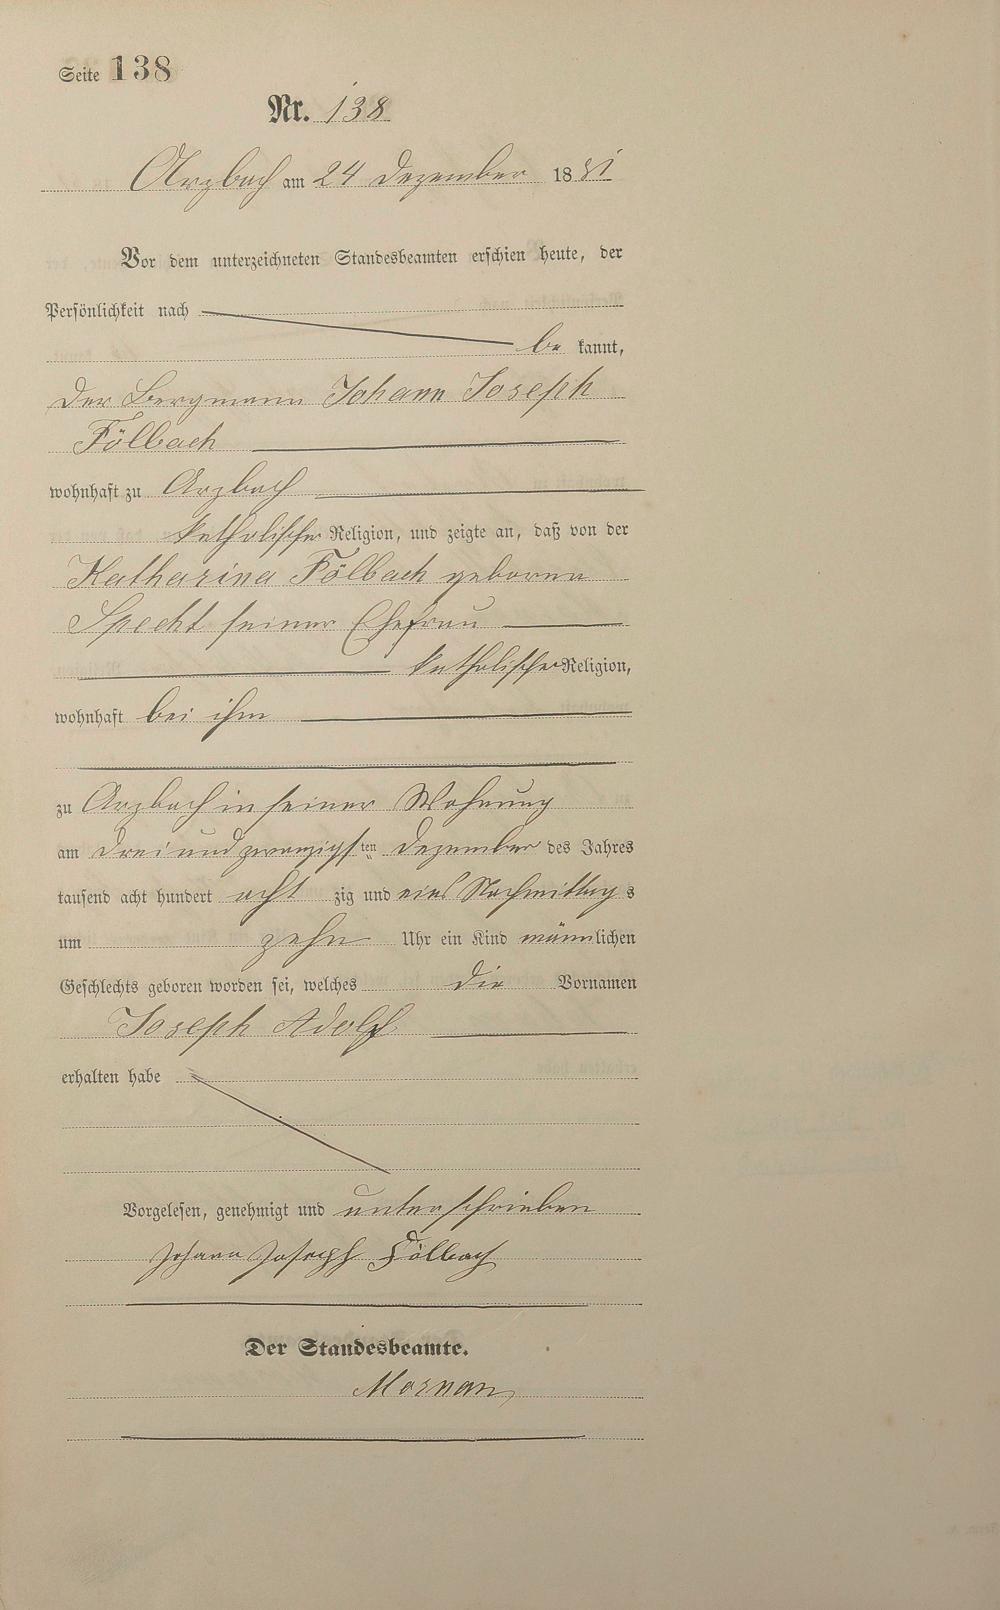 Seite 138
Nr. 138
Arzbach am 24 Dezember 1881
Vor dem unterzeichneten Standesbeamten erschien heute, der
Persönlichkeit nach
be kannt,
der Bergmann Johann Joseph
Fölbach
wohnhaft zu Arzbach
katholischer Religion, und zeigte an, daß von der
Katharina Fölbach geborne
Specht seiner Ehefrau
katholischer Religion,
wohnhaft bei ihm
zu Arzbach in seiner Wohnung
am drei und zwanzigsten Dezember des Jahres
tausend acht hundert acht zig und eins Nachmittags
um zehn Uhr ein Kind männlichen
Geschlechts geboren worden sei, welches die Vornamen
Joseph Adolf
erhalten habe
Vorgelesen, genehmigt und unterschrieben
Johann Joseph Fölbach
Der Standesbeamte.